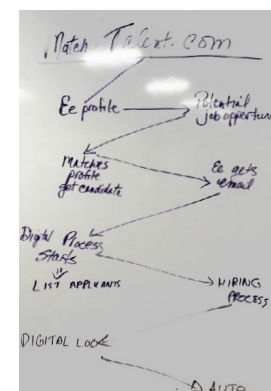 Match-Talent.com
Ee profile
Potential
job opportun
Matches
profile
get candidate
Ee gets
email
Digital Process
Starts
LIST APPLICANTS
HIRING
PROCESS
DIGITAL LOOK
AUTO